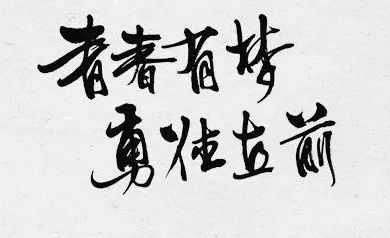 青春有梦
勇往直前